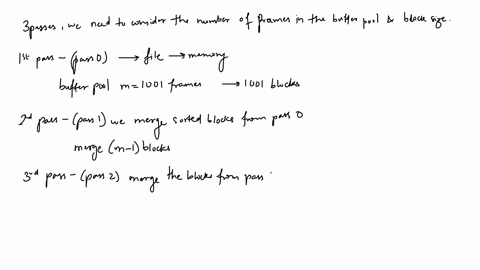 3passes, we need to consider the number of frames in the buffer pool & block size.
1st pass - (pass 0) → file → memory
buffer pool m = 1001 frames → 1001 blocks
2nd pass - (pass 1) we merge sorted blocks from pass 0
merge (m-1) blocks
3rd pass - (pass 2) merge the blocks from pass